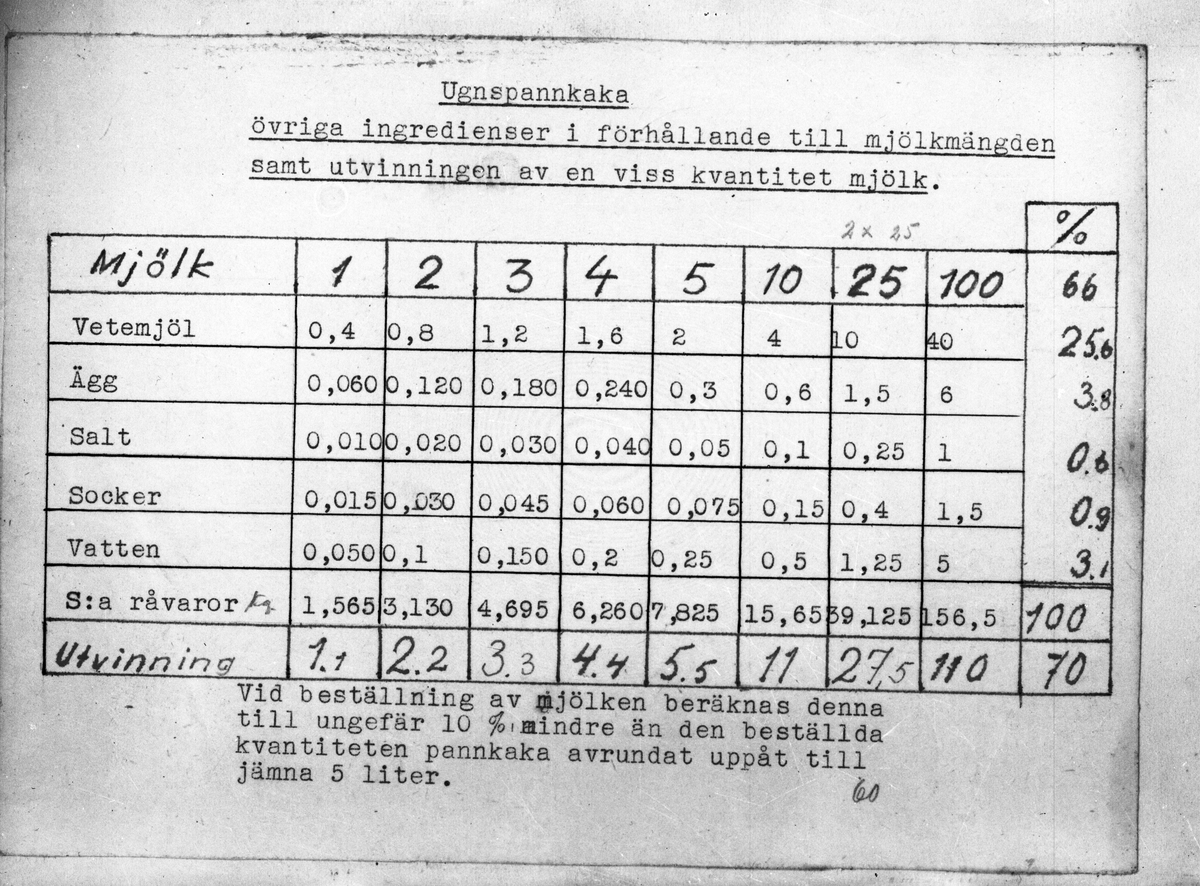 Ugnspannkaka
övriga ingredienser i förhållande till mjölkmängden
samt utvinningen av en viss kvantitet mjölk.
2 x 25
%
Mjölk 1 2 3 4 5 10 25 100 66
Vetemjöl 0,4 0,8 1,2 1,6 2 4 10 40 25.6
Ägg 0,060 0,120 0,180 0,240 0,3 0,6 1,5 6 3.8
Salt 0,010 0,020 0,030 0,040 0,05 0,1 0,25 1 0.6
Socker 0,015 0,030 0,045 0,060 0,075 0,15 0,4 1,5 0.9
Vatten 0,050 0,1 0,150 0,2 0,25 0,5 1,25 5 3.1
S:a råvaror kg 1,565 3,130 4,695 6,260 7,825 15,65 39,125 156,5 100
Utvinning 1.1 2.2 3.3 4.4 5.5 11 27,5 110 70
Vid beställning av mjölken beräknas denna
till ungefär 10 % mindre än den beställda
kvantiteten pannkaka avrundat uppåt till
jämna 5 liter.
60